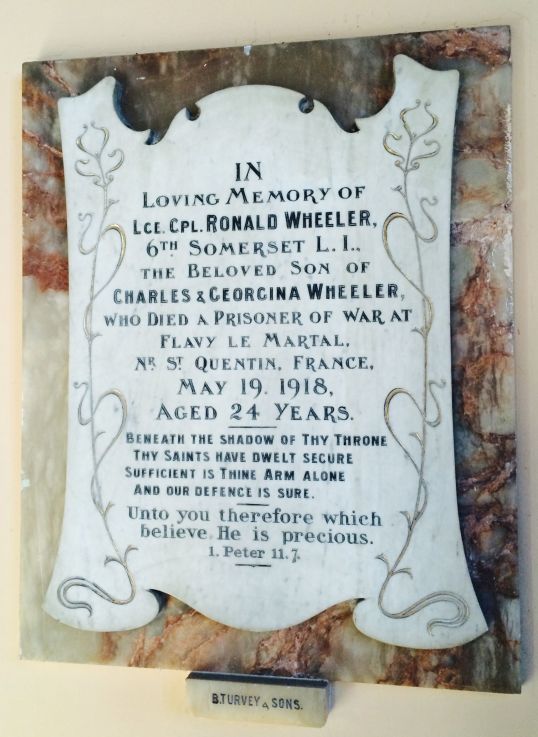 IN
LOVING MEMORY OF
LCE. CPL. RONALD WHEELER,
6TH SOMERSET L. I.,
THE BELOVED SON OF
CHARLES & GEORGINA WHEELER,
WHO DIED A PRISONER OF WAR AT
FLAVY LE MARTAL,
NR ST QUENTIN, FRANCE,
MAY 19. 1918,
AGED 24 YEARS.
BENEATH THE SHADOW OF THY THRONE
THY SAINTS HAVE DWELT SECURE
SUFFICIENT IS THINE ARM ALONE
AND OUR DEFENCE IS SURE.
Unto you therefore which
believe He is precious.
1. Peter 11. 7.
B. TURVEY & SONS.